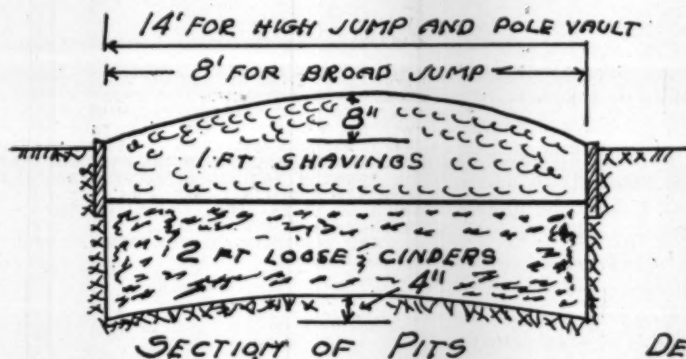 14' FOR HIGH JUMP AND POLE VAULT
8' FOR BROAD JUMP
8"
1 FT SHAVINGS
2 FT LOOSE CINDERS
4"
SECTION OF PITS
DE